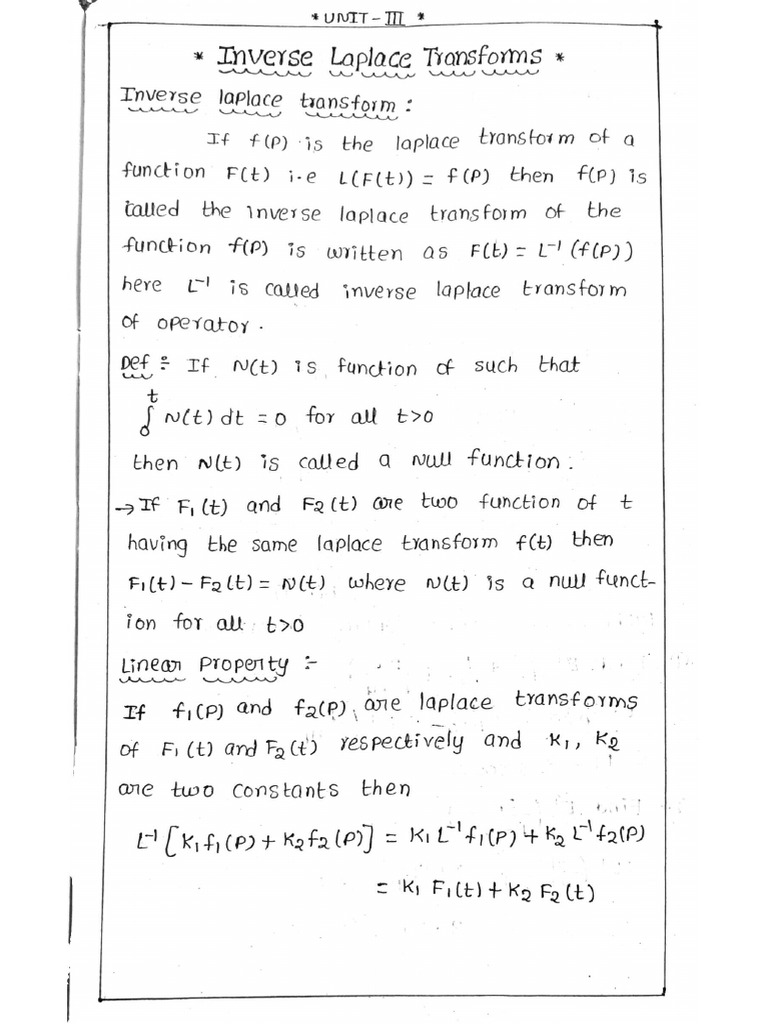 * UNIT - III *
* Inverse Laplace Transforms *
Inverse laplace transform :
If f(P) is the laplace transform of a
function F(t) i.e L(F(t)) = f(P) then f(P) is
called the inverse laplace transform of the
function f(P) is written as F(t) = L⁻¹ (f(P))
here L⁻¹ is called inverse laplace transform
of operator.
Def :- If N(t) is function of such that
∫₀ᵗ N(t) dt = 0 for all t>0
then N(t) is called a Null function.
→ If F₁(t) and F₂(t) are two function of t
having the same laplace transform f(t) then
F₁(t) - F₂(t) = N(t) where N(t) is a null funct-
ion for all t>0
Linear Property :-
If f₁(P) and f₂(P) are laplace transforms
of F₁(t) and F₂(t) respectively and K₁, K₂
are two constants then
L⁻¹ [K₁f₁(P) + K₂f₂(P)] = K₁ L⁻¹f₁(P) + K₂ L⁻¹f₂(P)
= K₁ F₁(t) + K₂ F₂(t)